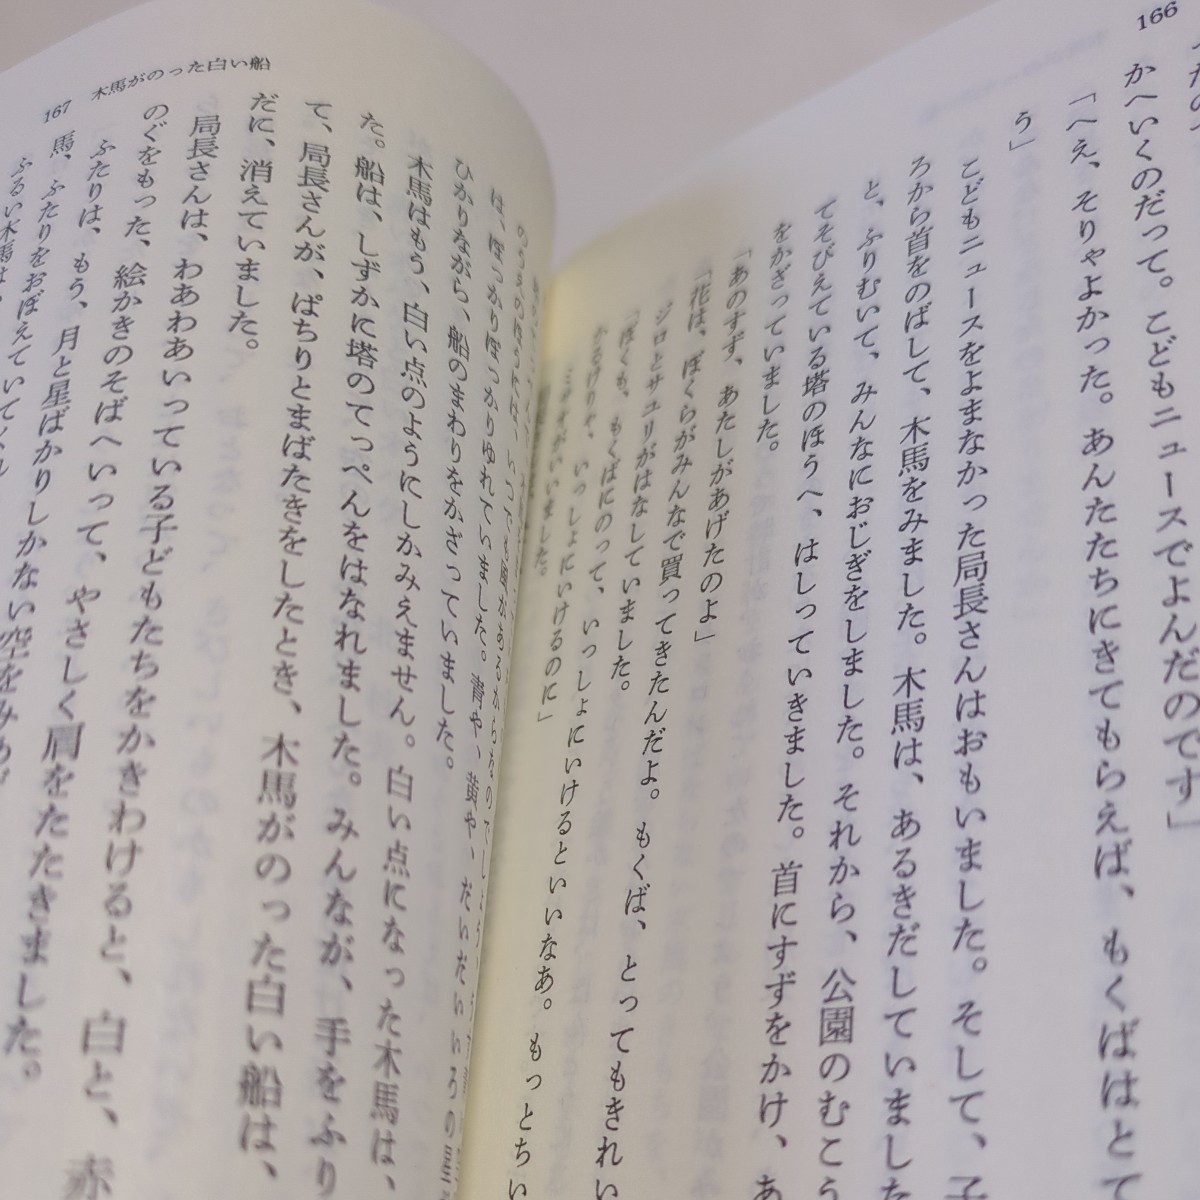 166
かへいくのだって。こどもニュースでよんだのです」
「へえ、そりゃよかった。あんたたちにきてもらえば、もくばはとて
う」
こどもニュースをよまなかった局長さんはおもいました。そして、子
ろから首をのばして、木馬をみました。木馬は、あるきだしていました
と、ふりむいて、みんなにおじぎをしました。それから、公園のむこう
てそびえている塔のほうへ、はしっていきました。首にすずをかけ、あ
をかざっていました。
「あのすず、あたしがあげたのよ」
「花は、ぼくらがみんなで買ってきたんだよ。もくば、とってもきれい
ジロとサユリがはなしていました。
「ぼくも、もくばにのって、いっしょにいけるといいなあ。もっとちい
いっしょにいけるのに」
がいいました。
167 木馬がのった白い船
は、ぽっかりぽっかりゆれていました。青や、黄や、だいだいいろの
ひかりながら、船のまわりをかざっていました。
木馬はもう、白い点のようにしかみえません。白い点になった木馬は、
た。船は、しずかに塔のてっぺんをはなれました。みんなが、手をふり
て、局長さんが、ぱちりとまばたきをしたとき、木馬がのった白い船は、
だに、消えていました。
局長さんは、わあわあいっている子どもたちをかきわけると、白と、赤
のぐをもった、絵かきのそばへいって、やさしく肩をたたきました。
ふたりは、もう、月と星ばかりしかない空をみあ
馬、ふたりをおぼえていてくれ
ふるい木馬は